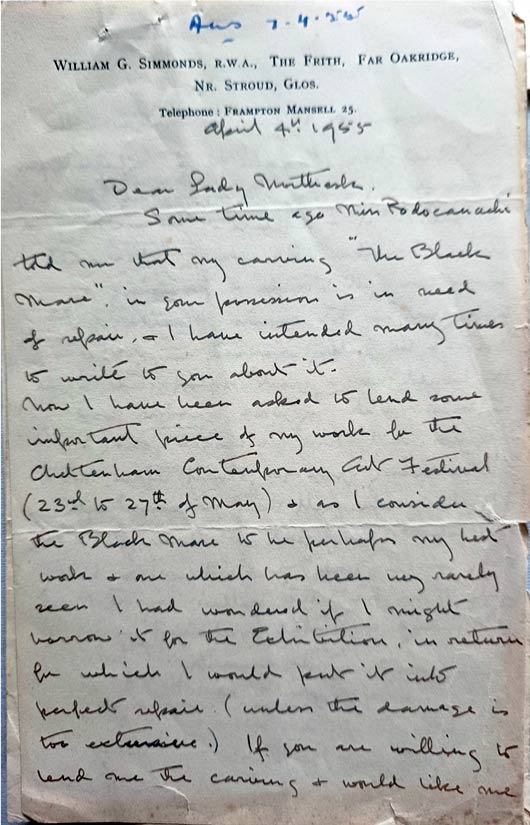 Ans 7-4-55
WILLIAM G. SIMMONDS, R.W.A., THE FRITH, FAR OAKRIDGE,
NR. STROUD, GLOS.
Telephone: FRAMPTON MANSELL 25.
April 4th 1955
Dear Lady Northesk.
Some time ago Miss Rodocanachi
told me that my carving "The Black
Mare", in your possession is in need
of repair, & I have intended many times
to write to you about it.
Now I have been asked to lend some
important piece of my work for the
Cheltenham Contemporary Art Festival
(23rd to 27th of May) & as I consider
the Black Mare to be perhaps my best
work & one which has been very rarely
seen I had wondered if I might
borrow it for the Exhibition, in return
for which I would put it into
perfect repair. (unless the damage is
too extensive.) If you are willing to
lend me the carving & would like me